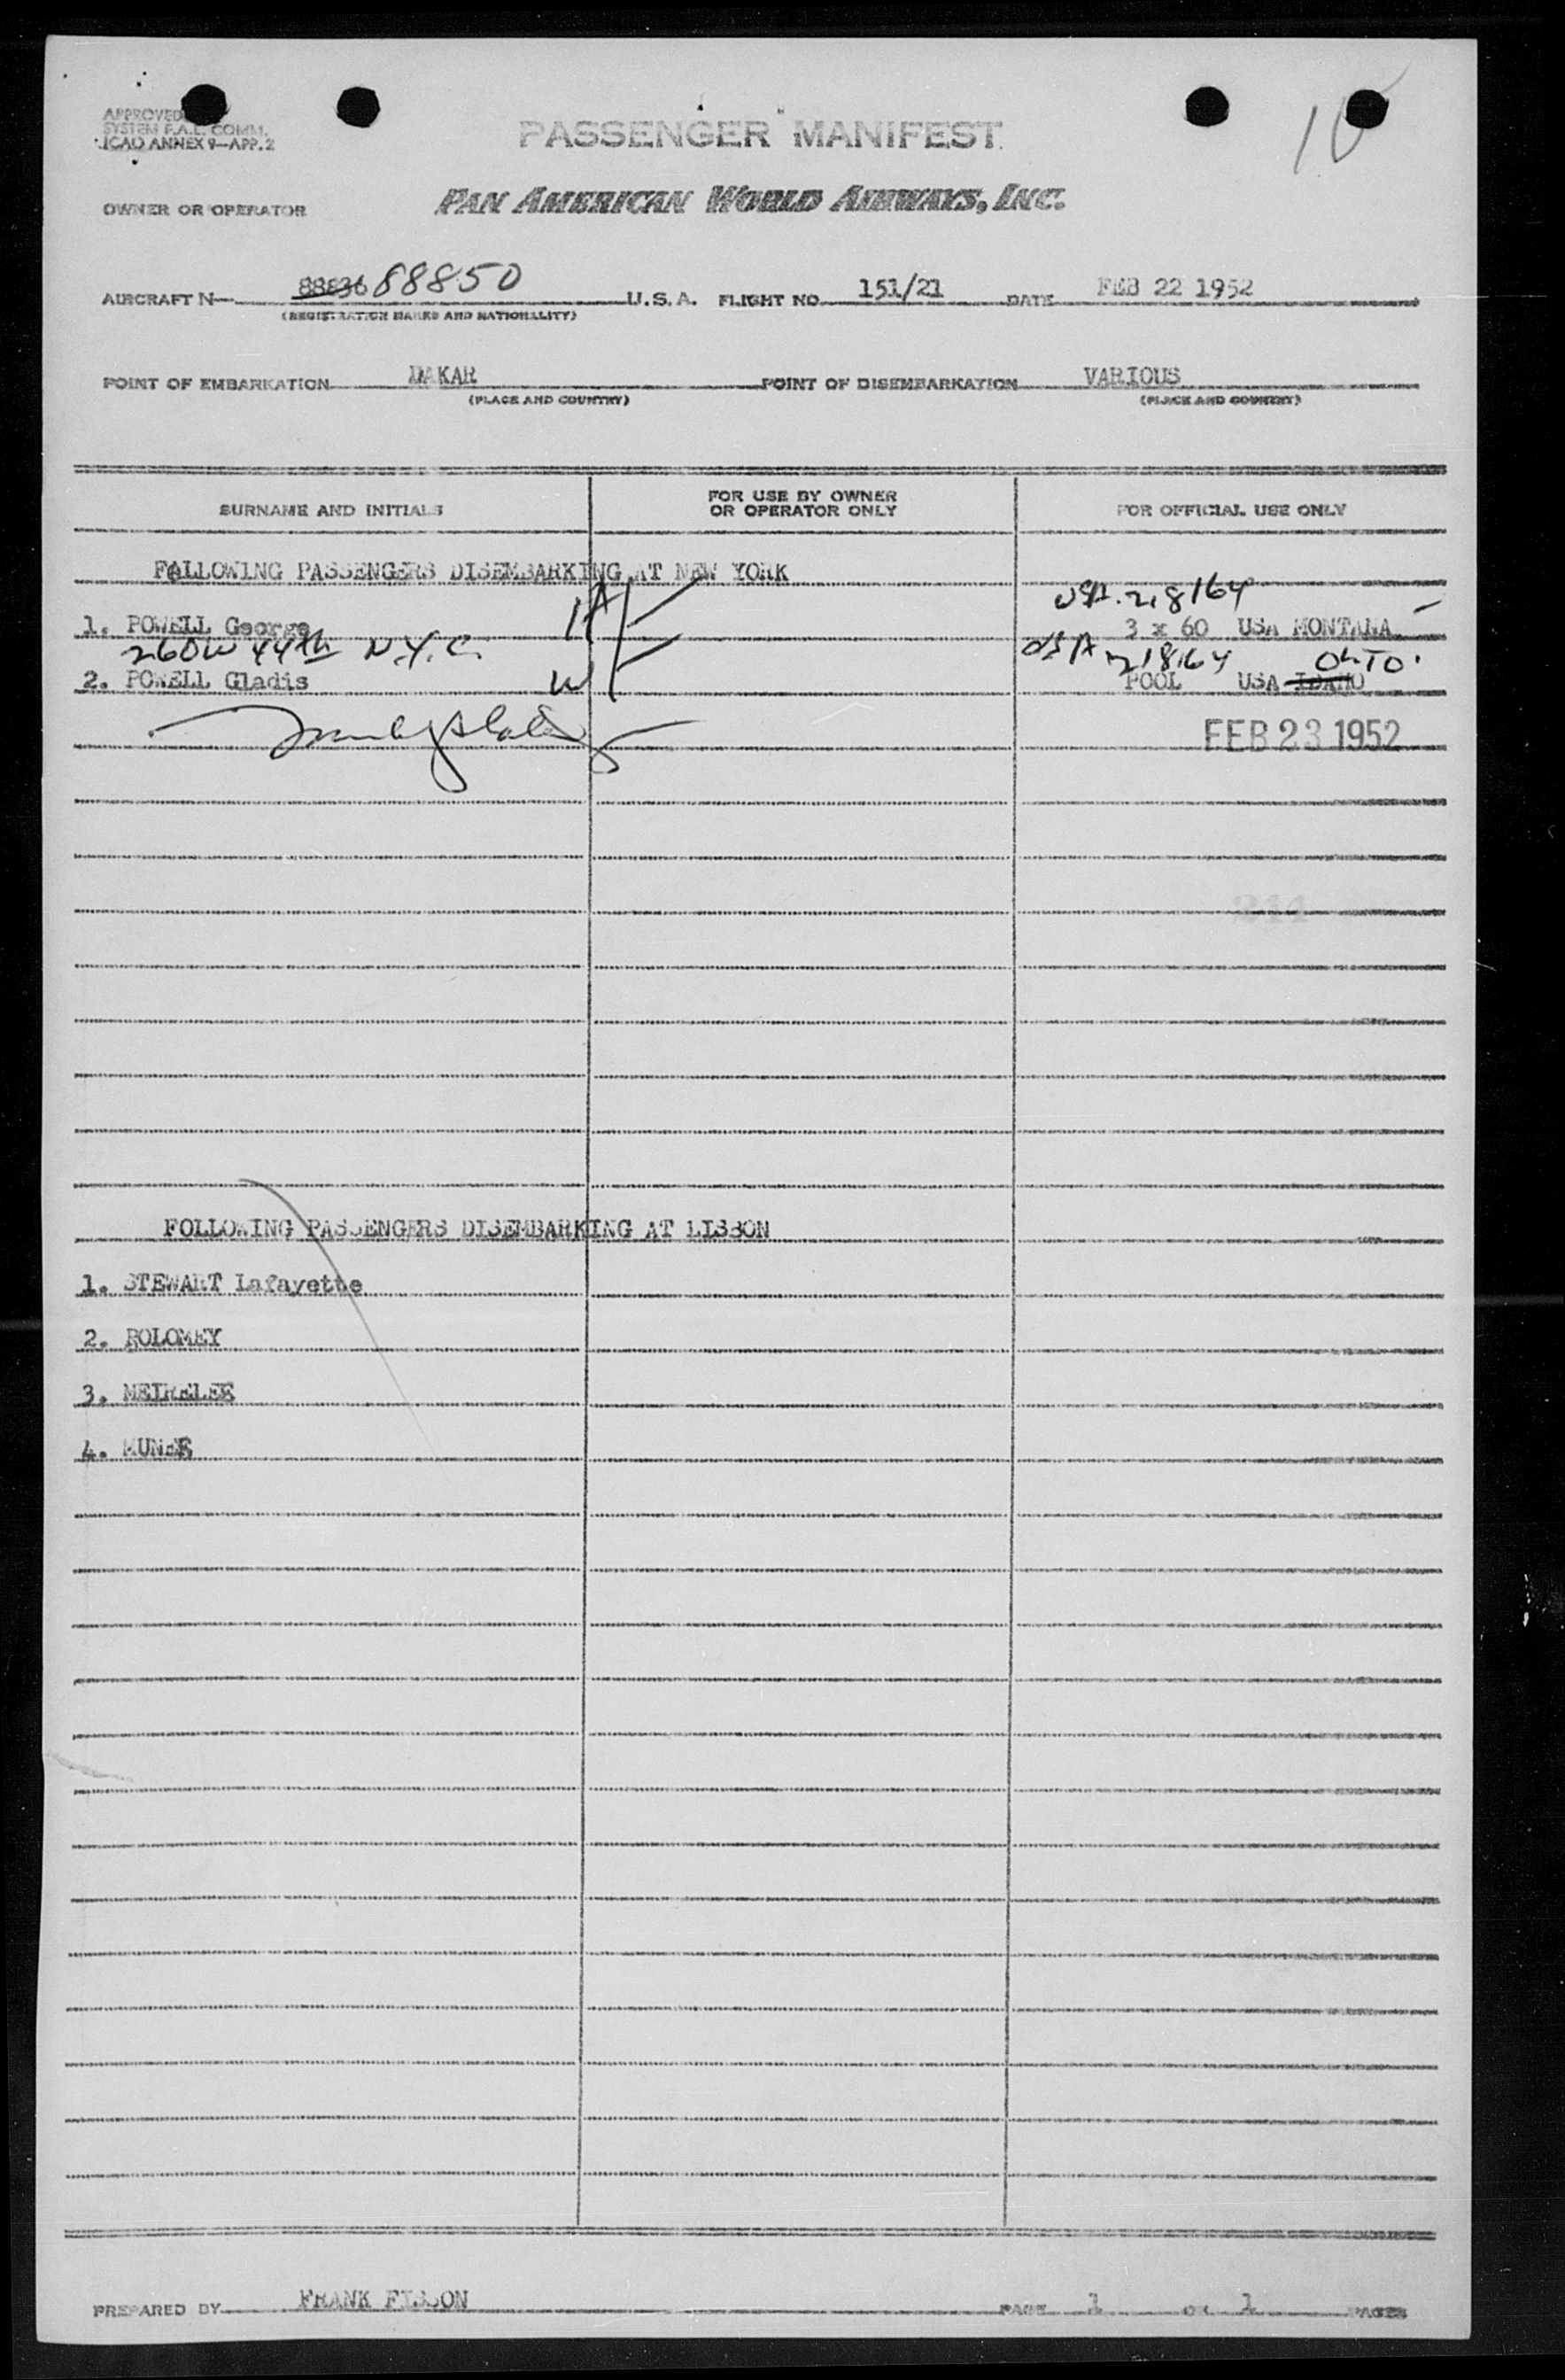 APPROVED
SYSTEM F.A.L. COMM.
ICAO ANNEX 9—APP. 2
PASSENGER MANIFEST
10
OWNER OR OPERATOR PAN AMERICAN WORLD AIRWAYS, INC.
AIRCRAFT N 88836 88850 U.S.A. FLIGHT NO. 151/21 DATE FEB 22 1952
(REGISTRATION MARKS AND NATIONALITY)
POINT OF EMBARKATION DAKAR POINT OF DISEMBARKATION VARIOUS
(PLACE AND COUNTRY) (PLACE AND COUNTRY)
SURNAME AND INITIALS FOR USE BY OWNER OR OPERATOR ONLY FOR OFFICIAL USE ONLY
FOLLOWING PASSENGERS DISEMBARKING AT NEW YORK
USA. 218164
1. POWELL George H 3 x 60 USA MONTANA
260 W 44th N.Y.C. USA 218164 OHIO.
2. POWELL Gladis W POOL USA IDAHO
FEB 23 1952
244
FOLLOWING PASSENGERS DISEMBARKING AT LISBON
1. STEWART Lafayette
2. ROLOMEY
3. MEIRELEE
4. MUNER
PREPARED BY FRANK PAGE 1 OF 1 PAGES